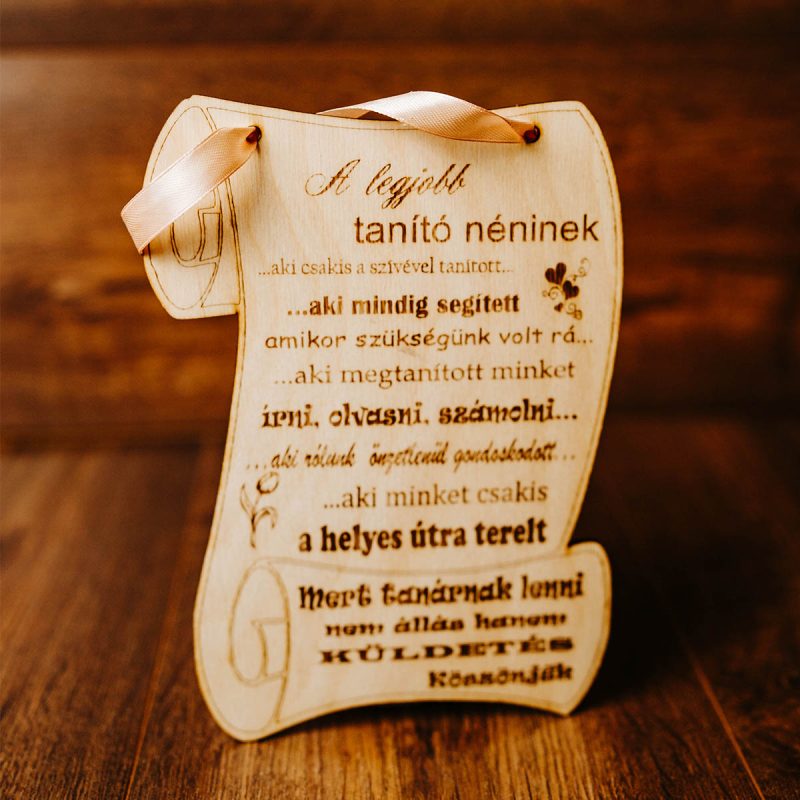 A legjobb
tanító néninek
...aki csakis a szívével tanított...
...aki mindig segített
amikor szükségünk volt rá...
...aki megtanított minket
írni, olvasni, számolni...
...aki rólunk önzetlenül gondoskodott...
...aki minket csakis
a helyes útra terelt
Mert tanárnak lenni
nem állás hanem
KÜLDETÉS
Köszönjük